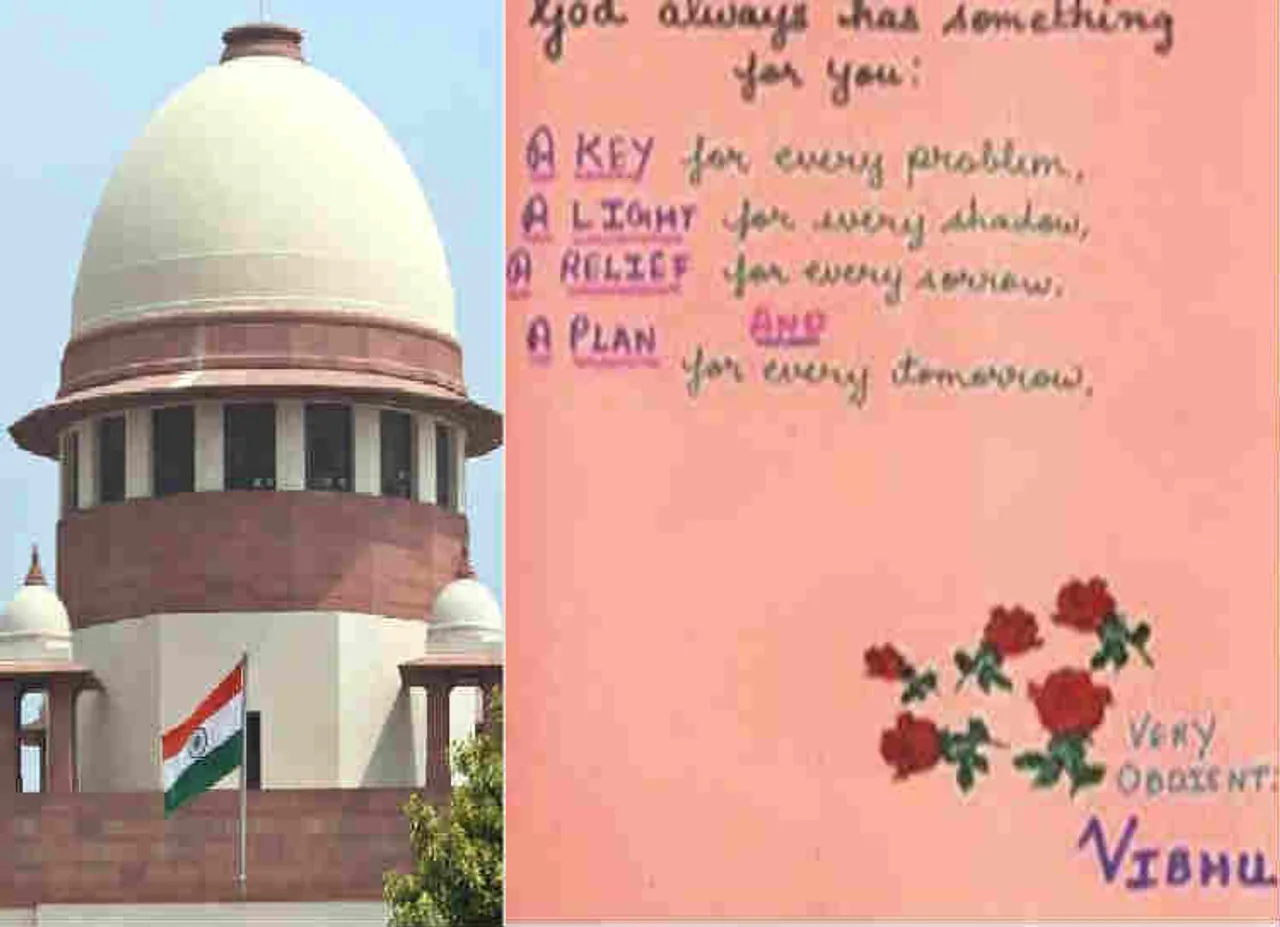 God always has something
for you:
A KEY for every problem,
A LIGHT for every shadow,
A RELIEF for every sorrow,
AND
A PLAN for every tomorrow,
VERY
OBDIENT
VIBHU